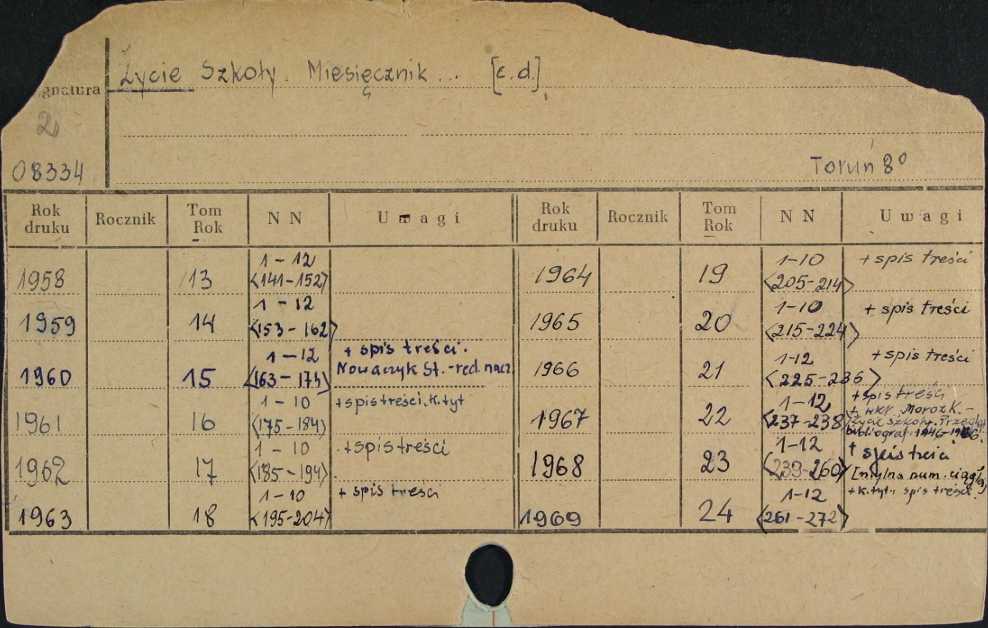 Życie Szkoły. Miesięcznik... [c.d.]
gnatura
2
08334
Toruń 8°
Rok druku Rocznik Tom Rok NN Uwagi Rok druku Rocznik Tom Rok NN Uwagi
1958 13 1-12 <141-152>
1959 14 1-12 <153-162>
1960 15 1-12 <163-174> + spis treści. Nowaczyk St. - red. nacz.
1961 16 1-10 <175-184> + spis treści, k. tyt
1962 17 1-10 <185-194> + spis treści
1963 18 1-10 <195-204> + spis treści
1964 19 1-10 <205-214> + spis treści
1965 20 1-10 <215-224> + spis treści
1966 21 1-12 <225-236> + spis treści
1967 22 1-12 <237-238> + spis treści + wkł. Moroz K. - Życie Szkoły. bibliograf. 1946-
1968 23 1-12 <239-260> + spis treści [mylna num. ciągła]
1969 24 1-12 <261-272> + k. tyt., spis treści.